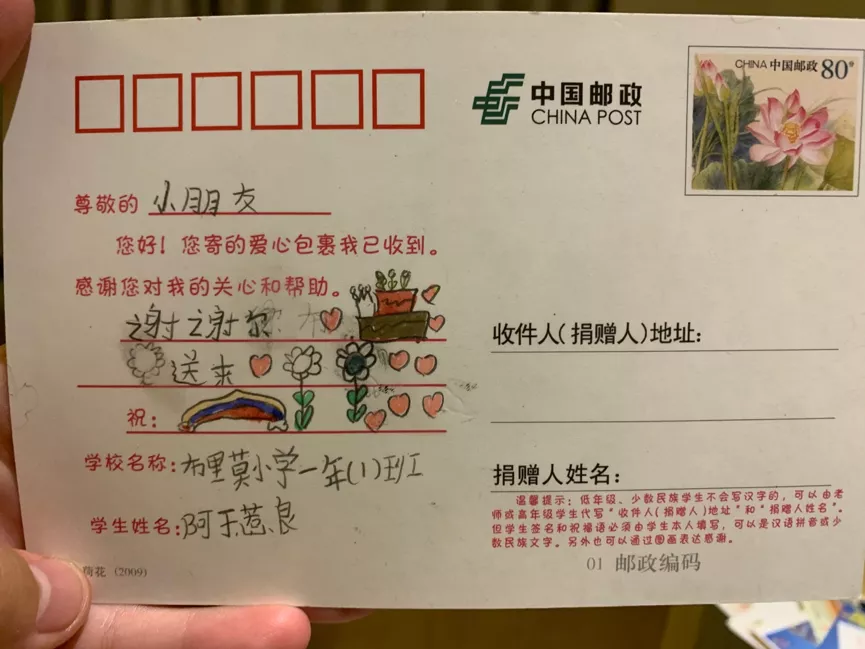 中国邮政
CHINA POST
CHINA 中国邮政 80分
尊敬的 小朋友
您好！您寄的爱心包裹我已收到。
感谢您对我的关心和帮助。
谢谢你
送来
祝：
学校名称：布里莫小学一年(1)班
学生姓名：阿 惹良
荷花 (2009)
收件人(捐赠人)地址：
捐赠人姓名：
温馨提示：低年级、少数民族学生不会写汉字的，可以由老
师或高年级学生代写“收件人(捐赠人)地址”和“捐赠人姓名”。
但学生签名和祝福语必须由学生本人填写，可以是汉语拼音或少
数民族文字。另外也可以通过图画表达感谢。
01 邮政编码